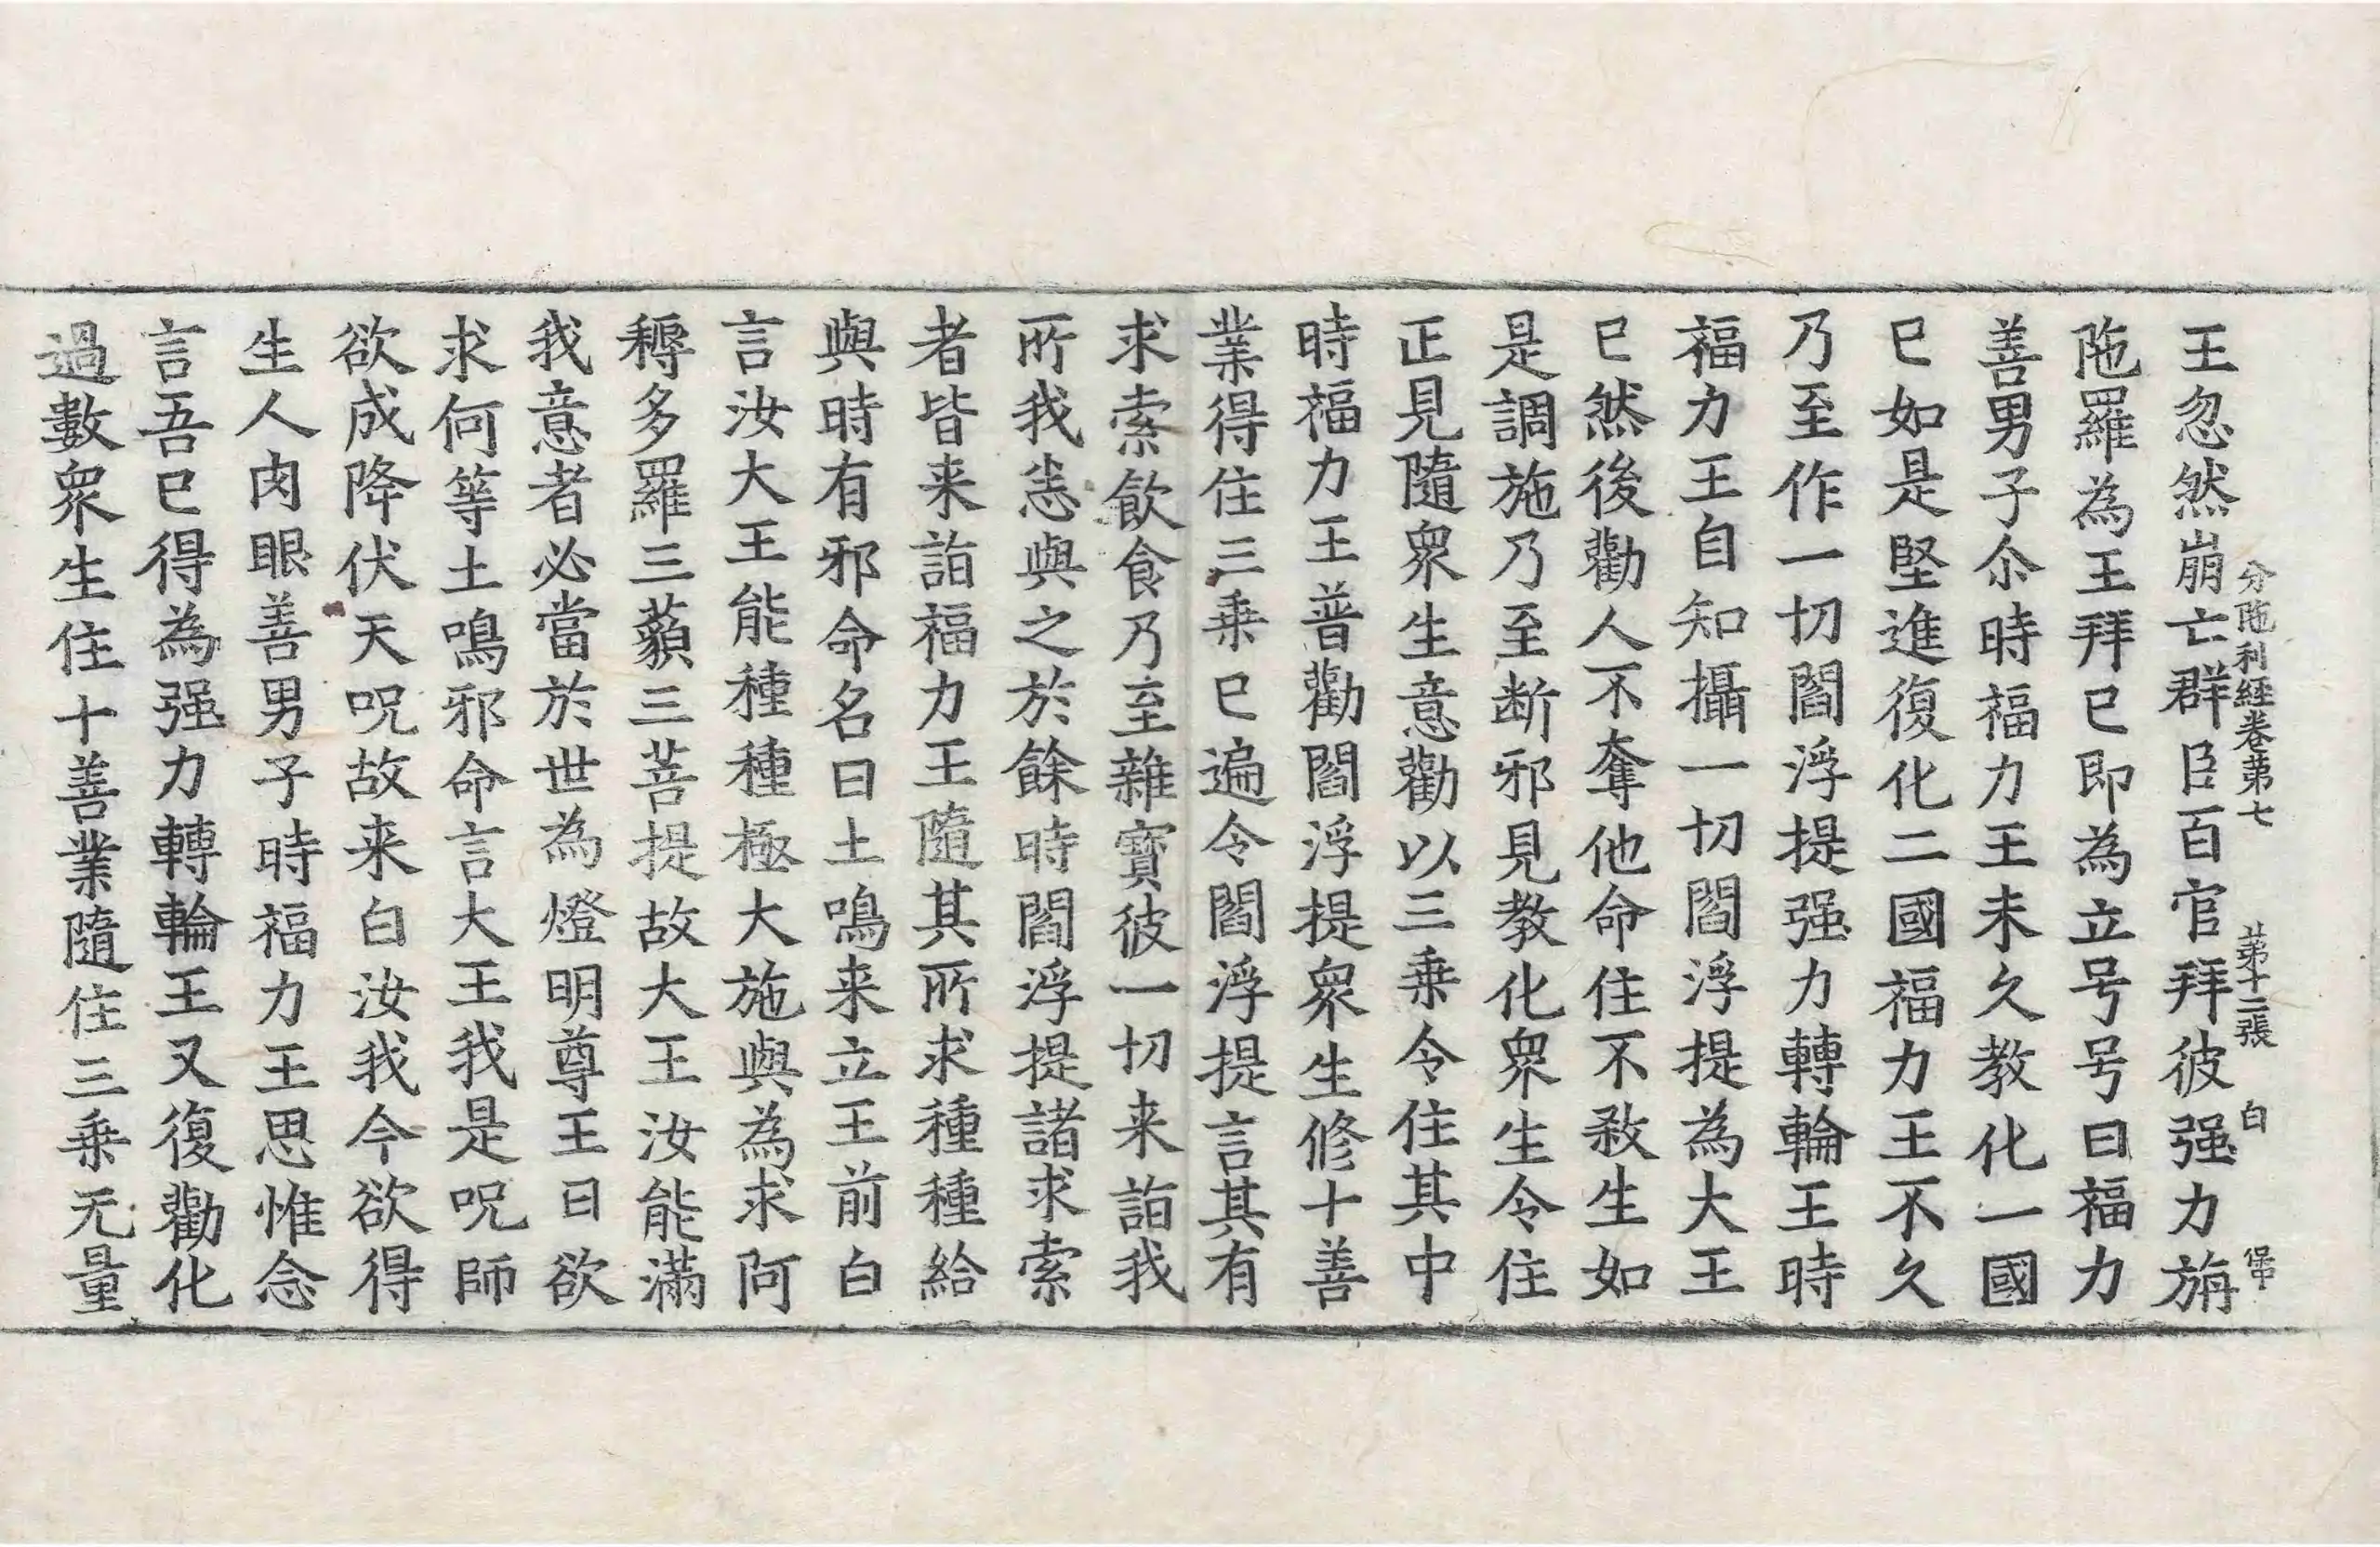 分陁利經卷苐七 苐十二張 白 㑒中
王忽然崩亡群臣百官拜彼强力旃
陁羅為王拜已即為立号号曰福力
善男子尒時福力王未久教化一國
已如是堅進復化二國福力王不久
乃至作一切閻浮提强力轉輪王時
福力王自知攝一切閻浮提為大王
已然後勸人不奪他命住不煞生如
是調施乃至断邪見教化衆生令住
正見隨衆生意勸以三乘令住其中
時福力王普勸閻浮提衆生修十善
業得住三乘已遍令閻浮提言其有
求索飲食乃至雜寶彼一切来詣我
所我恙與之於餘時閻浮提諸求索
者皆来詣福力王隨其所求種種給
與時有邪命名曰土鳴来立王前白
言汝大王能種種極大施與為求阿
耨多羅三藐三菩提故大王汝能滿
我意者必當於世為燈明尊王曰欲
求何等土鳴邪命言大王我是呪師
欲成降伏天呪故来白汝我今欲得
生人肉眼善男子時福力王思惟念
言吾已得為强力轉輪王又復勸化
過數衆生住十善業隨住三乘无量